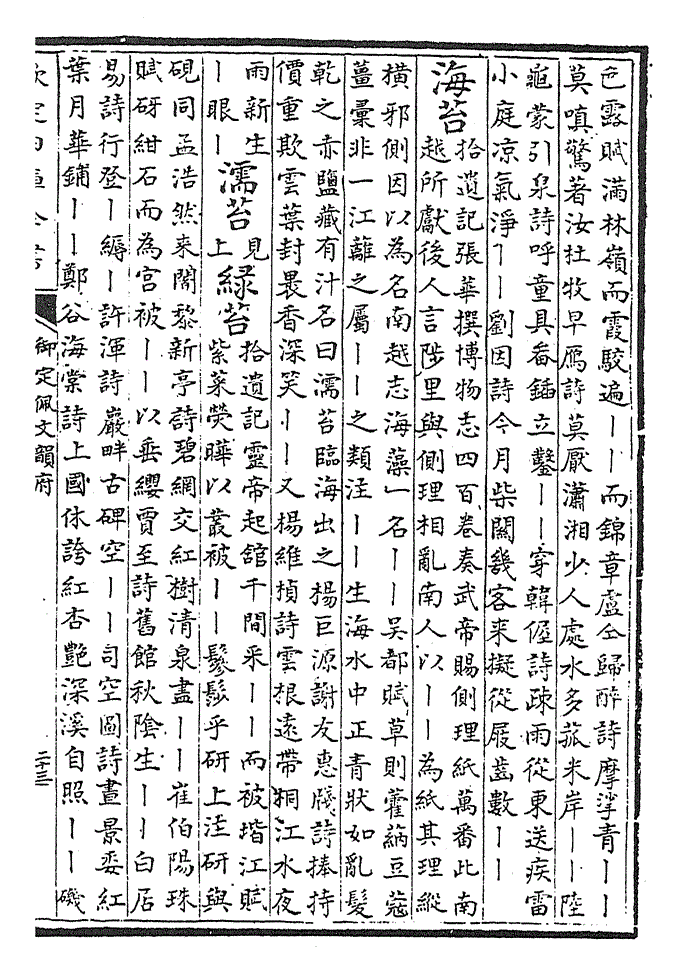 色露賦滿林嶺而霞駮遍丨丨而錦章盧仝歸醉詩摩挲青丨丨
莫嗔驚著汝杜牧早雁詩莫厭瀟湘少人處水多菰米岸丨丨陸
龜蒙引泉詩呼童具畚鍤立鑿丨丨穿韓偓詩疎雨從東送疾雷
小庭凉氣淨丨丨劉因詩今月柴關幾客来擬從屐齒數丨丨
海苔拾遺記張華撰博物志四百卷奏武帝賜側理紙萬番此南
越所獻後人言陟里與側理相亂南人以丨丨為紙其理縱
橫邪側因以為名南越志海藻一名丨丨吳都賦草則藿蒳豆蔻
薑彙非一江蘺之屬丨丨之類注丨丨生海水中正青狀如亂髮
乾之赤鹽藏有汁名曰濡苔臨海出之楊巨源謝友惠牋詩捧持
價重欺雲葉封裹香深笑丨丨又楊維楨詩雲根遠帶桐江水夜
雨新生丨眼丨濡苔見上緑苔拾遺記靈帝起舘千間采丨丨而被堦江賦
紫菜熒曄以叢被丨丨鬖髿乎研上注研與
硯同孟浩然来闍黎新亭詩碧網交紅樹清泉盡丨丨崔伯陽珠
賦砑紺石而為宮被丨丨以垂纓賈至詩舊館秋陰生丨丨白居
易詩行登丨縟丨許渾詩巖畔古碑空丨丨司空圖詩晝景委紅
葉月華鋪丨丨鄭谷海棠詩上國休誇紅杏艷深溪自照丨丨磯
欽定四庫全書
御定佩文韻府
二十三